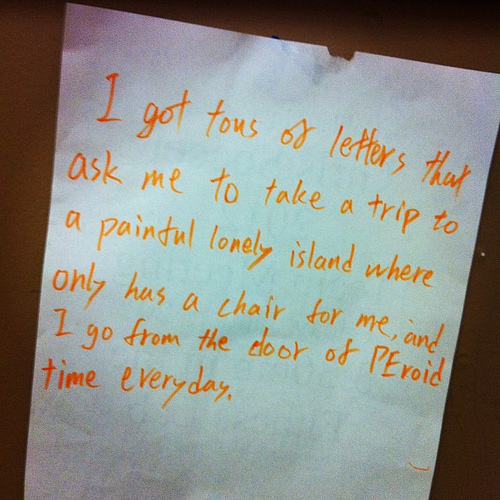 I got tons of letters that
ask me to take a trip to
a painful lonely island where
only has a chair for me, and
I go from the door of PEroid
time everyday.